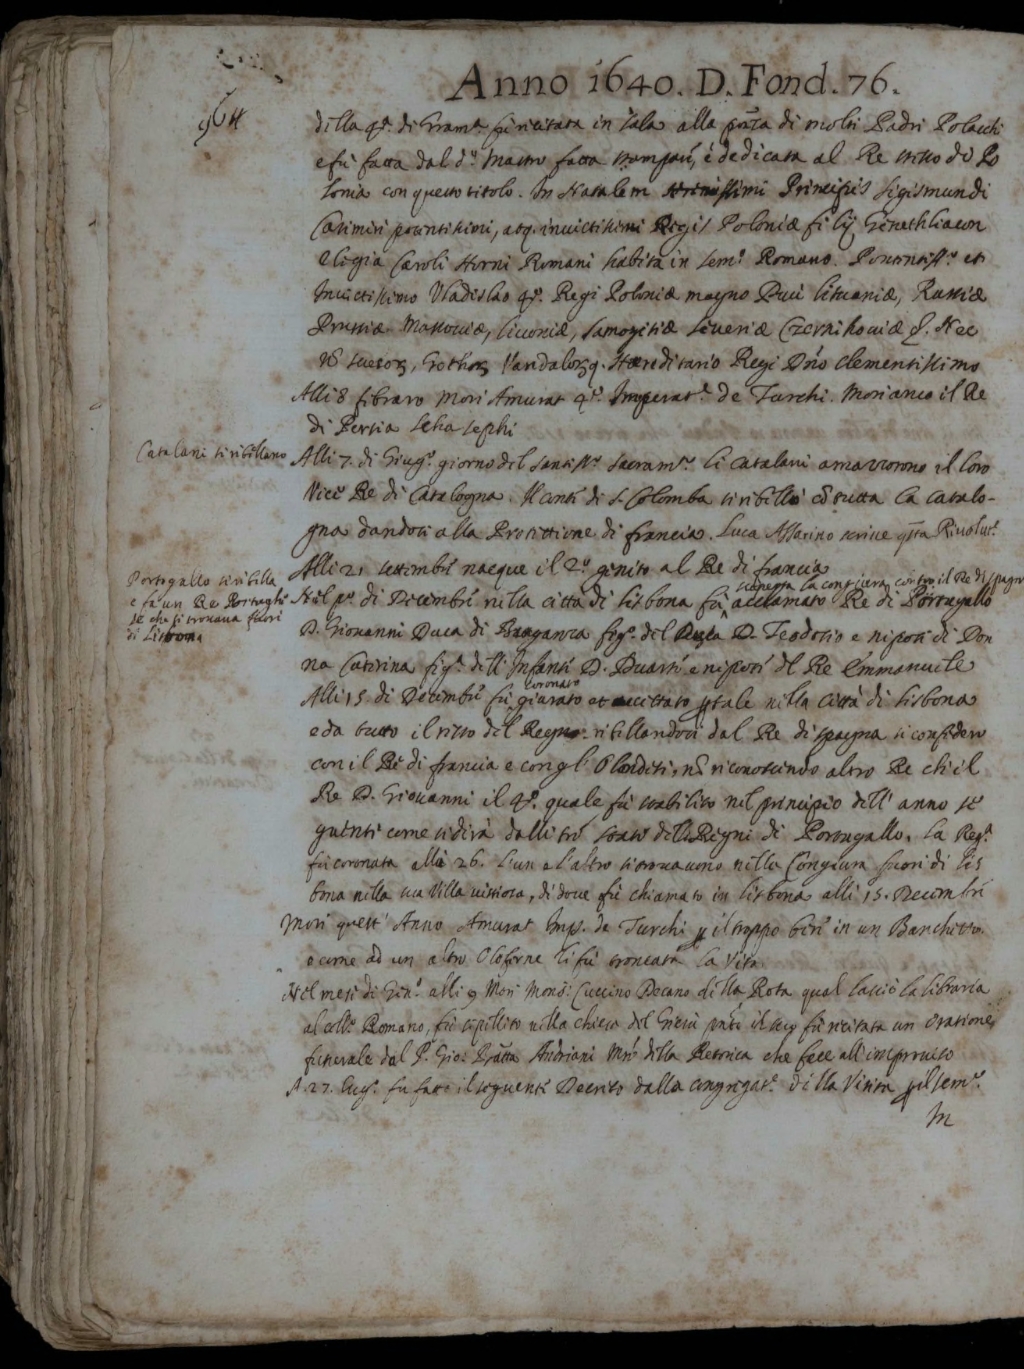 Anno 1640. D. Fond. 76.
964
della 4ª. di Gramª. fu recitata in sala alla pñza di molti Padri Polacchi
e fù fatta dal dº. Maestro fatta stampare, e dedicata al Re stesso di Po
lonia con questo titolo. In Natalem serenissimi Principis Sigismundi
Casimiri potentissimi, atq. invictissimi Regis Poloniæ filij Genethliacon
elogia Caroli Romani habita in semº. Romano. Potentissº. et
Invictissimo Vladislao 4º. Regi Poloniæ magno Duci Lituaniæ, Russiæ
Prussiæ Massouiæ, Liuoniæ, Samogitiæ Seueriæ Czernihouiæ &. Nec
Gothor, Vandalorq. Hæreditario Regi Dño clementissimo
Alli 8 febraro Morì Amurat 4º. Imperatᵉ. de Turchi. Morì anco il Re
di Persia Scha Sephi
Catalani si ribellano
Alli 7. di Giugº. giorno del santissº. sacramᵗᵒ. li Catalani amazzorono il loro
Vice Re di Catalogna. Il conte di S. Colomba si ribellò cõ tutta la Catalo-
gna dandosi alla Protettione di francia. Luca Assarino scriue q̃ta Riuolutᵉ.
Alli 21 settembre nacque il 2º. genito al Re di francia
Portogallo si ribella
e fa un Re Portughe
se che si trouaua fuori
di Lisbona
scoperta la congiura contro il Re di spagna
Nel pº. di Decembre nella città di Lisbona fu acclamato Re di Portugallo
D. Giouanni Duca di Braganza figº. del Duca D. Teodosio e nipote di Don
na Caterina figª. dell'Infante D. Duarte e nipote del Re Emmanuele
coronato
Alli 15. di Decembre fù giurato et accettato ꝑ tale nella città di Lisbona
e da tutto il resto del Regno. ribellandosi dal Re di spagna si confedero
con il Re di francia e con gl'Olandesi, nõ riconoscendo altro Re che il
Re D. Giouanni il 4º. quale fù stabilito nel principio dell'anno se
guente come si dirà dalli tre stati delli Regni di Portugallo. La Regª.
fù coronata alli 26. l'un e l'altro si trouauono nella Congiura fuori di Lis
bona nella sua Villa uitiosa, di doue fù chiamato in Lisbona alli 15. Decembre
Morì quest'Anno Amurat Imp. de Turchi ꝑ il troppo bere in un Banchetto.
o come ad un altro Oloferne li fù troncata la Vita.
Nel mese di Genº. alli 9 Morì Monsʳ: Cuccino Decano della Rota qual lasciò la libraria
al collº. Romano, fù sepellito nella chiesa del Giesù fù recitata un oratione
funerale dal P. Gioi: Bȃtta Andriani Mrõ della Retorica che fece all'improuiso
A 27. Lugº. fu fatto il seguente Decreto dalla congregatᵉ. della Visita ꝑ il semº.
In